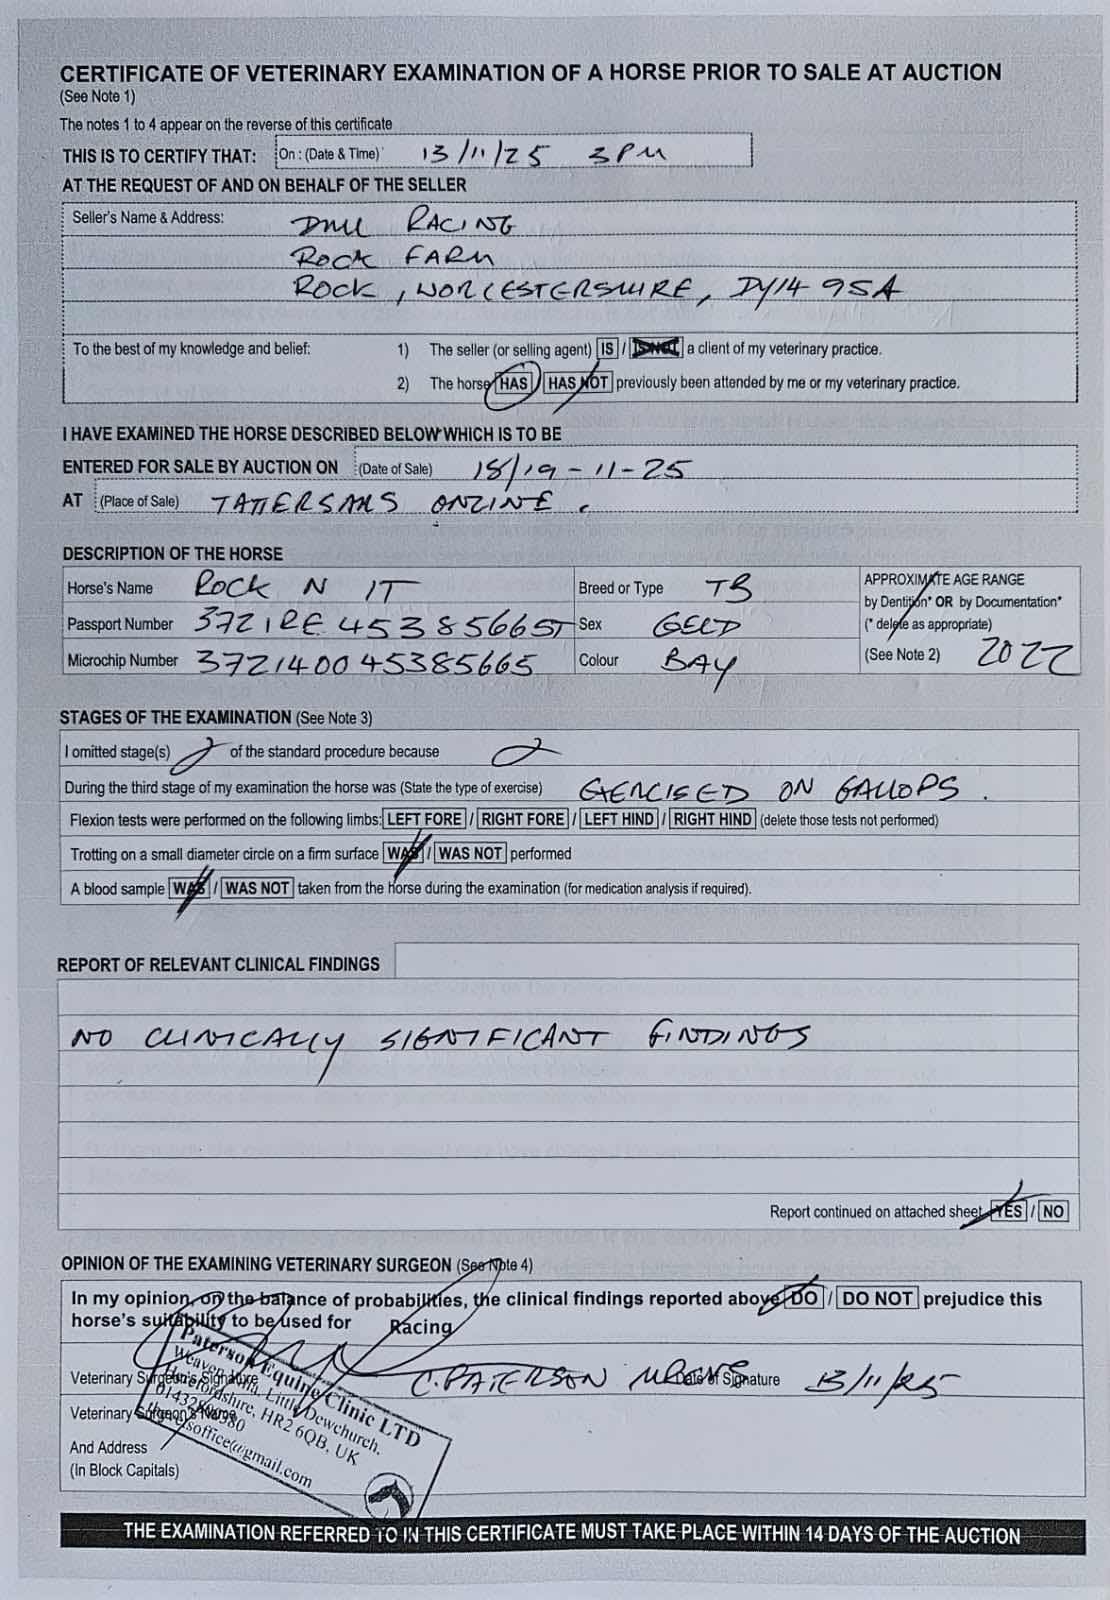 CERTIFICATE OF VETERINARY EXAMINATION OF A HORSE PRIOR TO SALE AT AUCTION
(See Note 1)
The notes 1 to 4 appear on the reverse of this certificate
THIS IS TO CERTIFY THAT: On : (Date & Time) 13/11/25 3PM
AT THE REQUEST OF AND ON BEHALF OF THE SELLER
Seller's Name & Address: RACING
ROCK FARM
ROCK, WORCESTERSHIRE, DY14 9SA
To the best of my knowledge and belief: 1) The seller (or selling agent) IS / IS NOT a client of my veterinary practice.
2) The horse HAS / HAS NOT previously been attended by me or my veterinary practice.
I HAVE EXAMINED THE HORSE DESCRIBED BELOW WHICH IS TO BE
ENTERED FOR SALE BY AUCTION ON (Date of Sale) 18/19-11-25
AT (Place of Sale) TATTERSALLS ONLINE.
DESCRIPTION OF THE HORSE
Horse's Name ROCK N IT Breed or Type TB
Passport Number 372 IRE 45385665 Sex GELD
Microchip Number 372140045385665 Colour BAY
APPROXIMATE AGE RANGE
by Dentition* OR by Documentation*
(* delete as appropriate)
(See Note 2) 2022
STAGES OF THE EXAMINATION (See Note 3)
I omitted stage(s) of the standard procedure because
During the third stage of my examination the horse was (State the type of exercise) EXERCISED ON GALLOPS.
Flexion tests were performed on the following limbs: LEFT FORE / RIGHT FORE / LEFT HIND / RIGHT HIND (delete those tests not performed)
Trotting on a small diameter circle on a firm surface WAS / WAS NOT performed
A blood sample WAS / WAS NOT taken from the horse during the examination (for medication analysis if required).
REPORT OF RELEVANT CLINICAL FINDINGS
NO CLINICALLY SIGNIFICANT FINDINGS
Report continued on attached sheet YES / NO
OPINION OF THE EXAMINING VETERINARY SURGEON (See Note 4)
In my opinion, on the balance of probabilities, the clinical findings reported above DO / DO NOT prejudice this
horse's suitability to be used for Racing
Veterinary Surgeon's Signature C. PATERSON MRCVS Date of Signature 13/11/25
Veterinary Surgeon's Name
And Address
(In Block Capitals)
Paterson Equine Clinic LTD
Little Dewchurch,
Herefordshire, HR2 6QB, UK
THE EXAMINATION REFERRED TO IN THIS CERTIFICATE MUST TAKE PLACE WITHIN 14 DAYS OF THE AUCTION